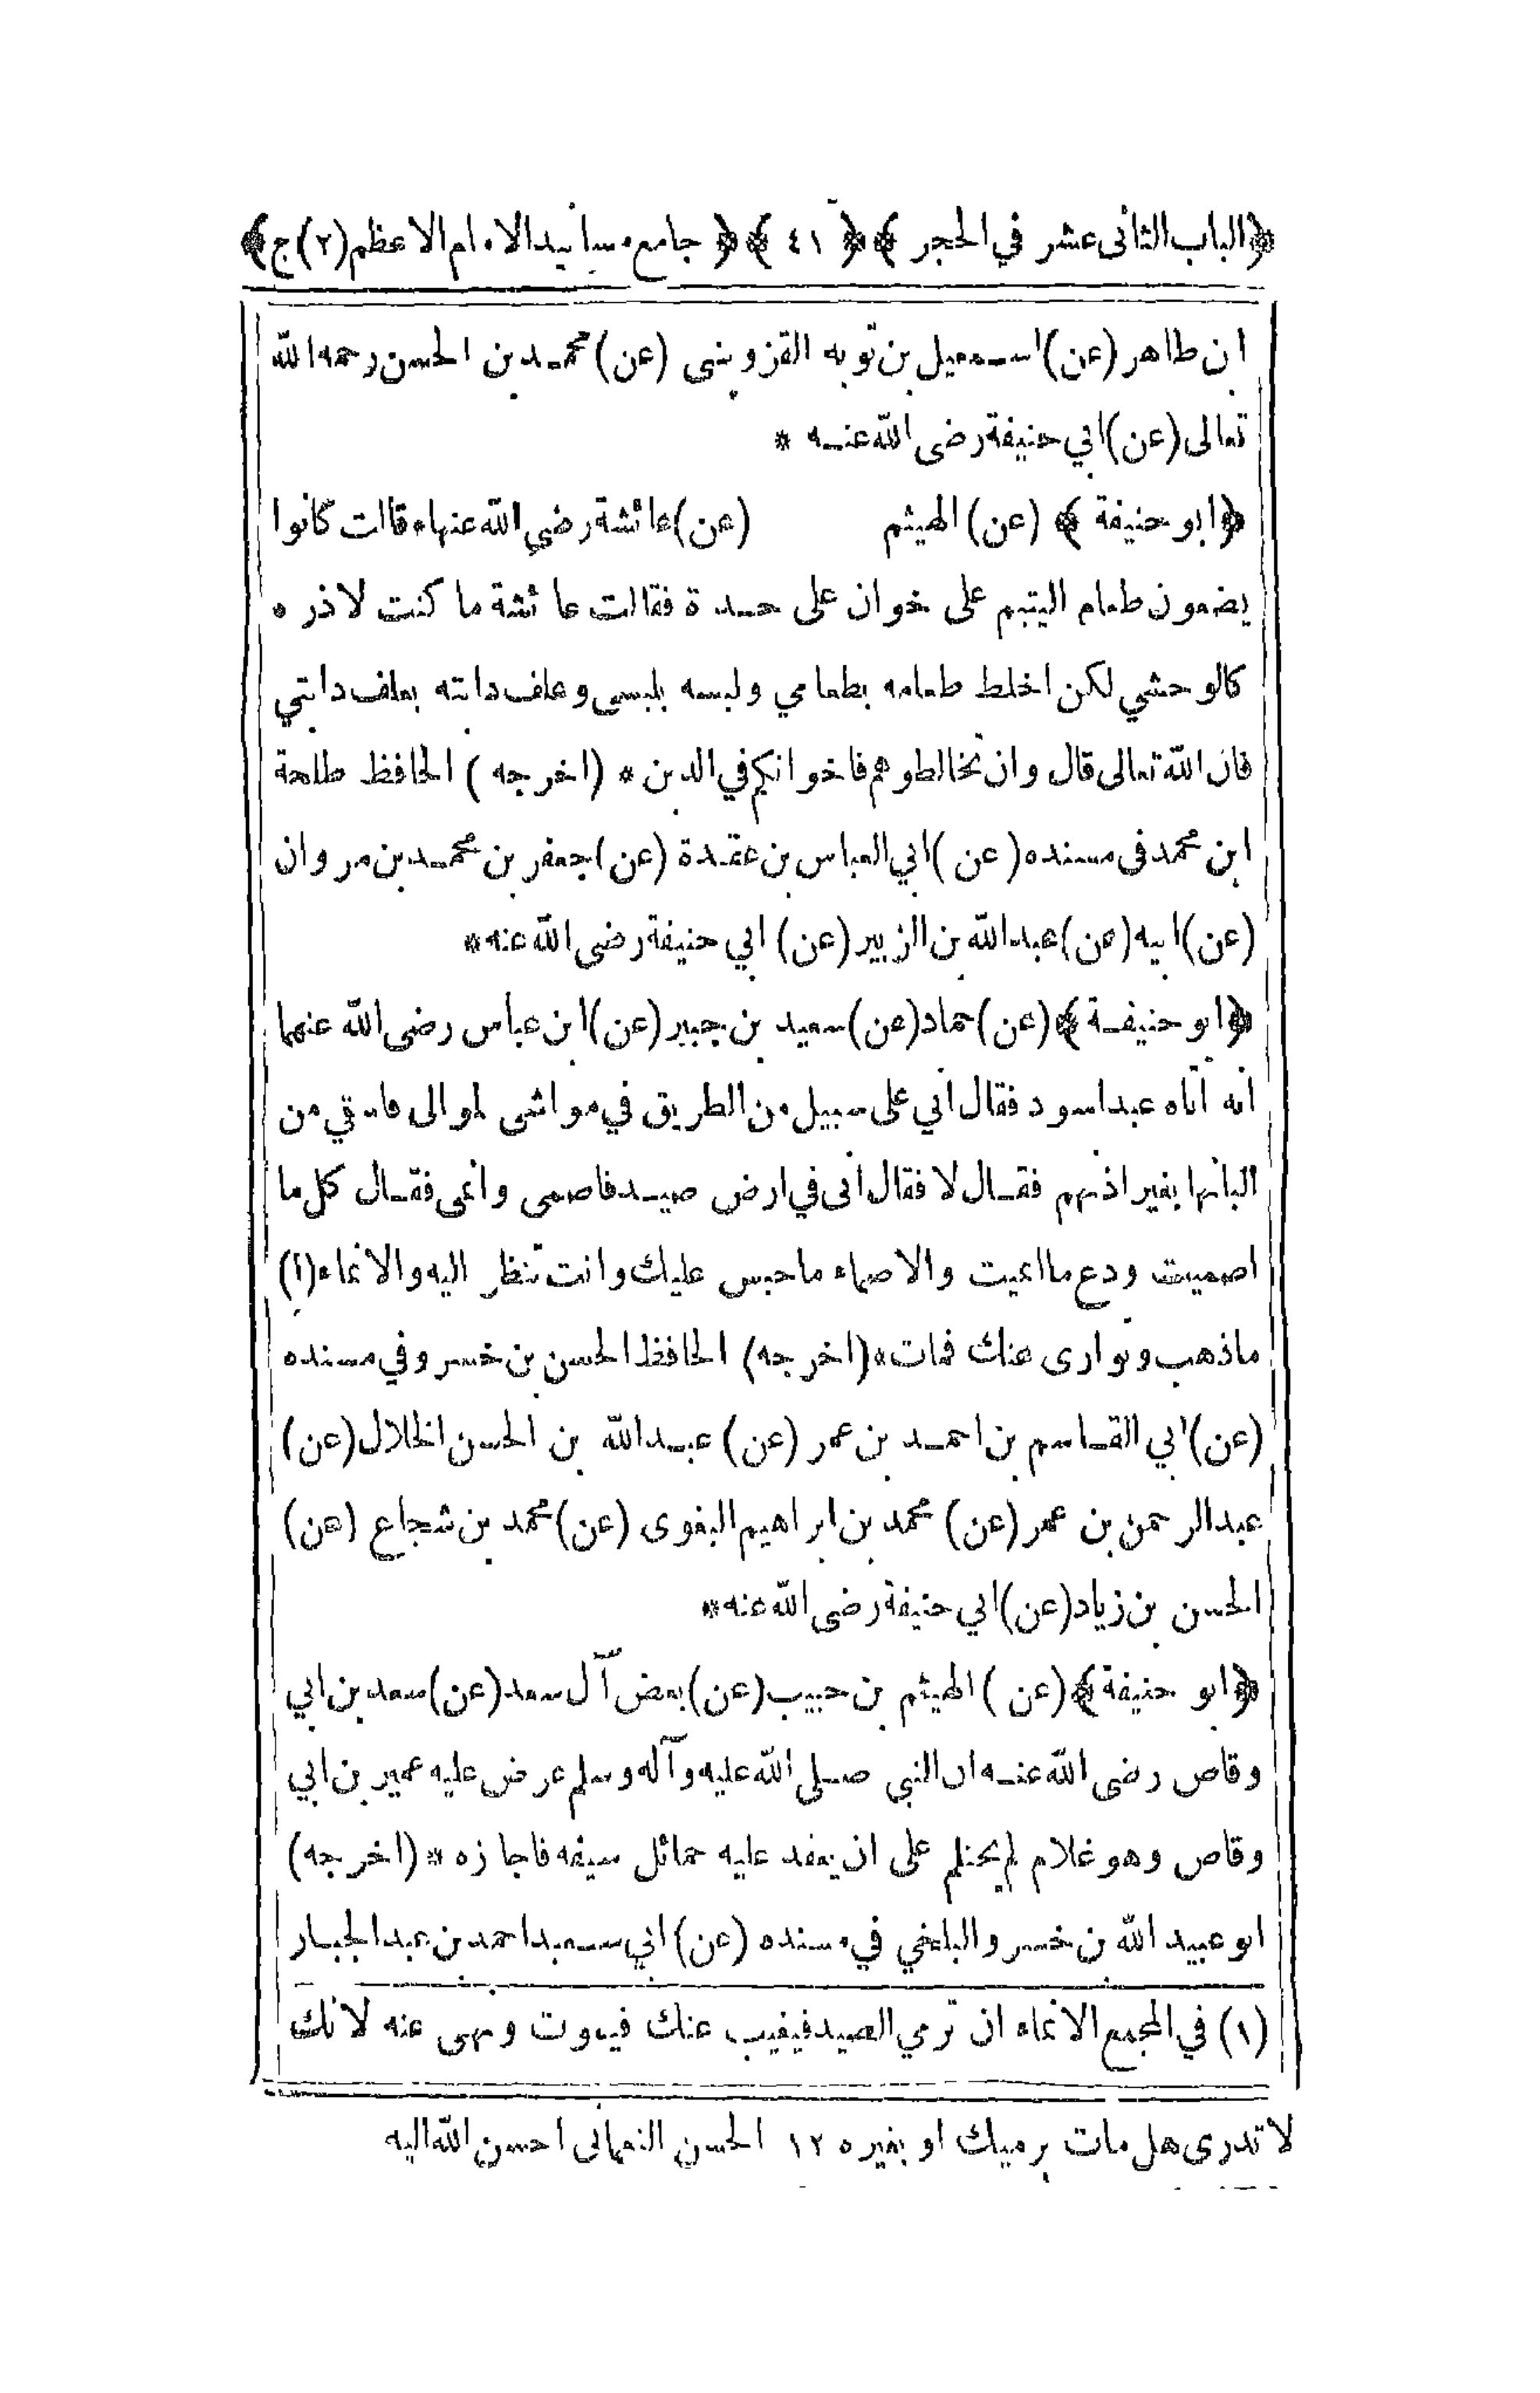 ﴿الباب الثانى عشر في الحجر﴾ ﴿٤١﴾ ﴿جامع مسانيد الامام الاعظم (٢) ج﴾
ابن طاهر (عن) اسمعيل بن توبه القزوينى (عن) محمد بن الحسن رحمه الله
تعالى (عن) ابي حنيفة رضى الله عنه *
﴿ابو حنيفة﴾ (عن) الهيثم (عن) عائشة رضي الله عنها قالت كانوا
يضعون طعام اليتيم على خوان على حدة فقالت عائشة ما كنت لاذره
كالوحشي لكن اخلط طعامه بطعامي ولبسه بلبسى وعلف دابته بعلف دابتي
فان الله تعالى قال وان تخالطوهم فاخوانكم في الدين * (اخرجه) الحافظ طلحة
ابن محمد فى مسنده (عن) ابي العباس بن عقدة (عن) جعفر بن محمد بن مروان
(عن) ابيه (عن) عبد الله بن الزبير (عن) ابي حنيفة رضى الله عنه *
﴿ابو حنيفة﴾ (عن) حماد (عن) سعيد بن جبير (عن) ابن عباس رضى الله عنهما
انه اتاه عبد اسود فقال اني على سبيل من الطريق في مواشى لموالى فاسقي من
البانها بغير اذنهم فقال لا فقال انى في ارض صيد فاصمى وانمى فقال كل ما
اصميت ودع ما انميت والاصماء ما حبس عليك وانت تنظر اليه والانماء (١)
ما ذهب وتوارى عنك فمات * (اخرجه) الحافظ الحسن بن خسرو في مسنده
(عن) ابي القاسم بن احمد بن عمر (عن) عبد الله بن الحسن الخلال (عن)
عبد الرحمن بن عمر (عن) محمد بن ابراهيم البغوى (عن) محمد بن شجاع (عن)
الحسن بن زياد (عن) ابي حنيفة رضى الله عنه *
﴿ابو حنيفة﴾ (عن) الهيثم بن حبيب (عن) بعض آل سعد (عن) سعد بن ابي
وقاص رضى الله عنه ان النبي صلى الله عليه وآله وسلم عرض عليه عمير بن ابي
وقاص وهو غلام لم يحتلم على ان يعقد عليه حمائل سيفه فاجازه * (اخرجه)
ابو عبيد الله بن خسرو البلخي في مسنده (عن) ابي سعيد احمد بن عبد الجبار
(١) في المجمع الانماء ان ترمي الصيد فيغيب عنك فيموت ونهى عنه لانك
لا تدرى هل مات برميك او بغيره ١٢ الحسن النعمانى احسن الله اليه